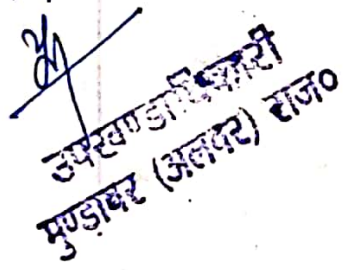 उपखण्ड अधिकारी
मुण्डावर (अलवर) राज०